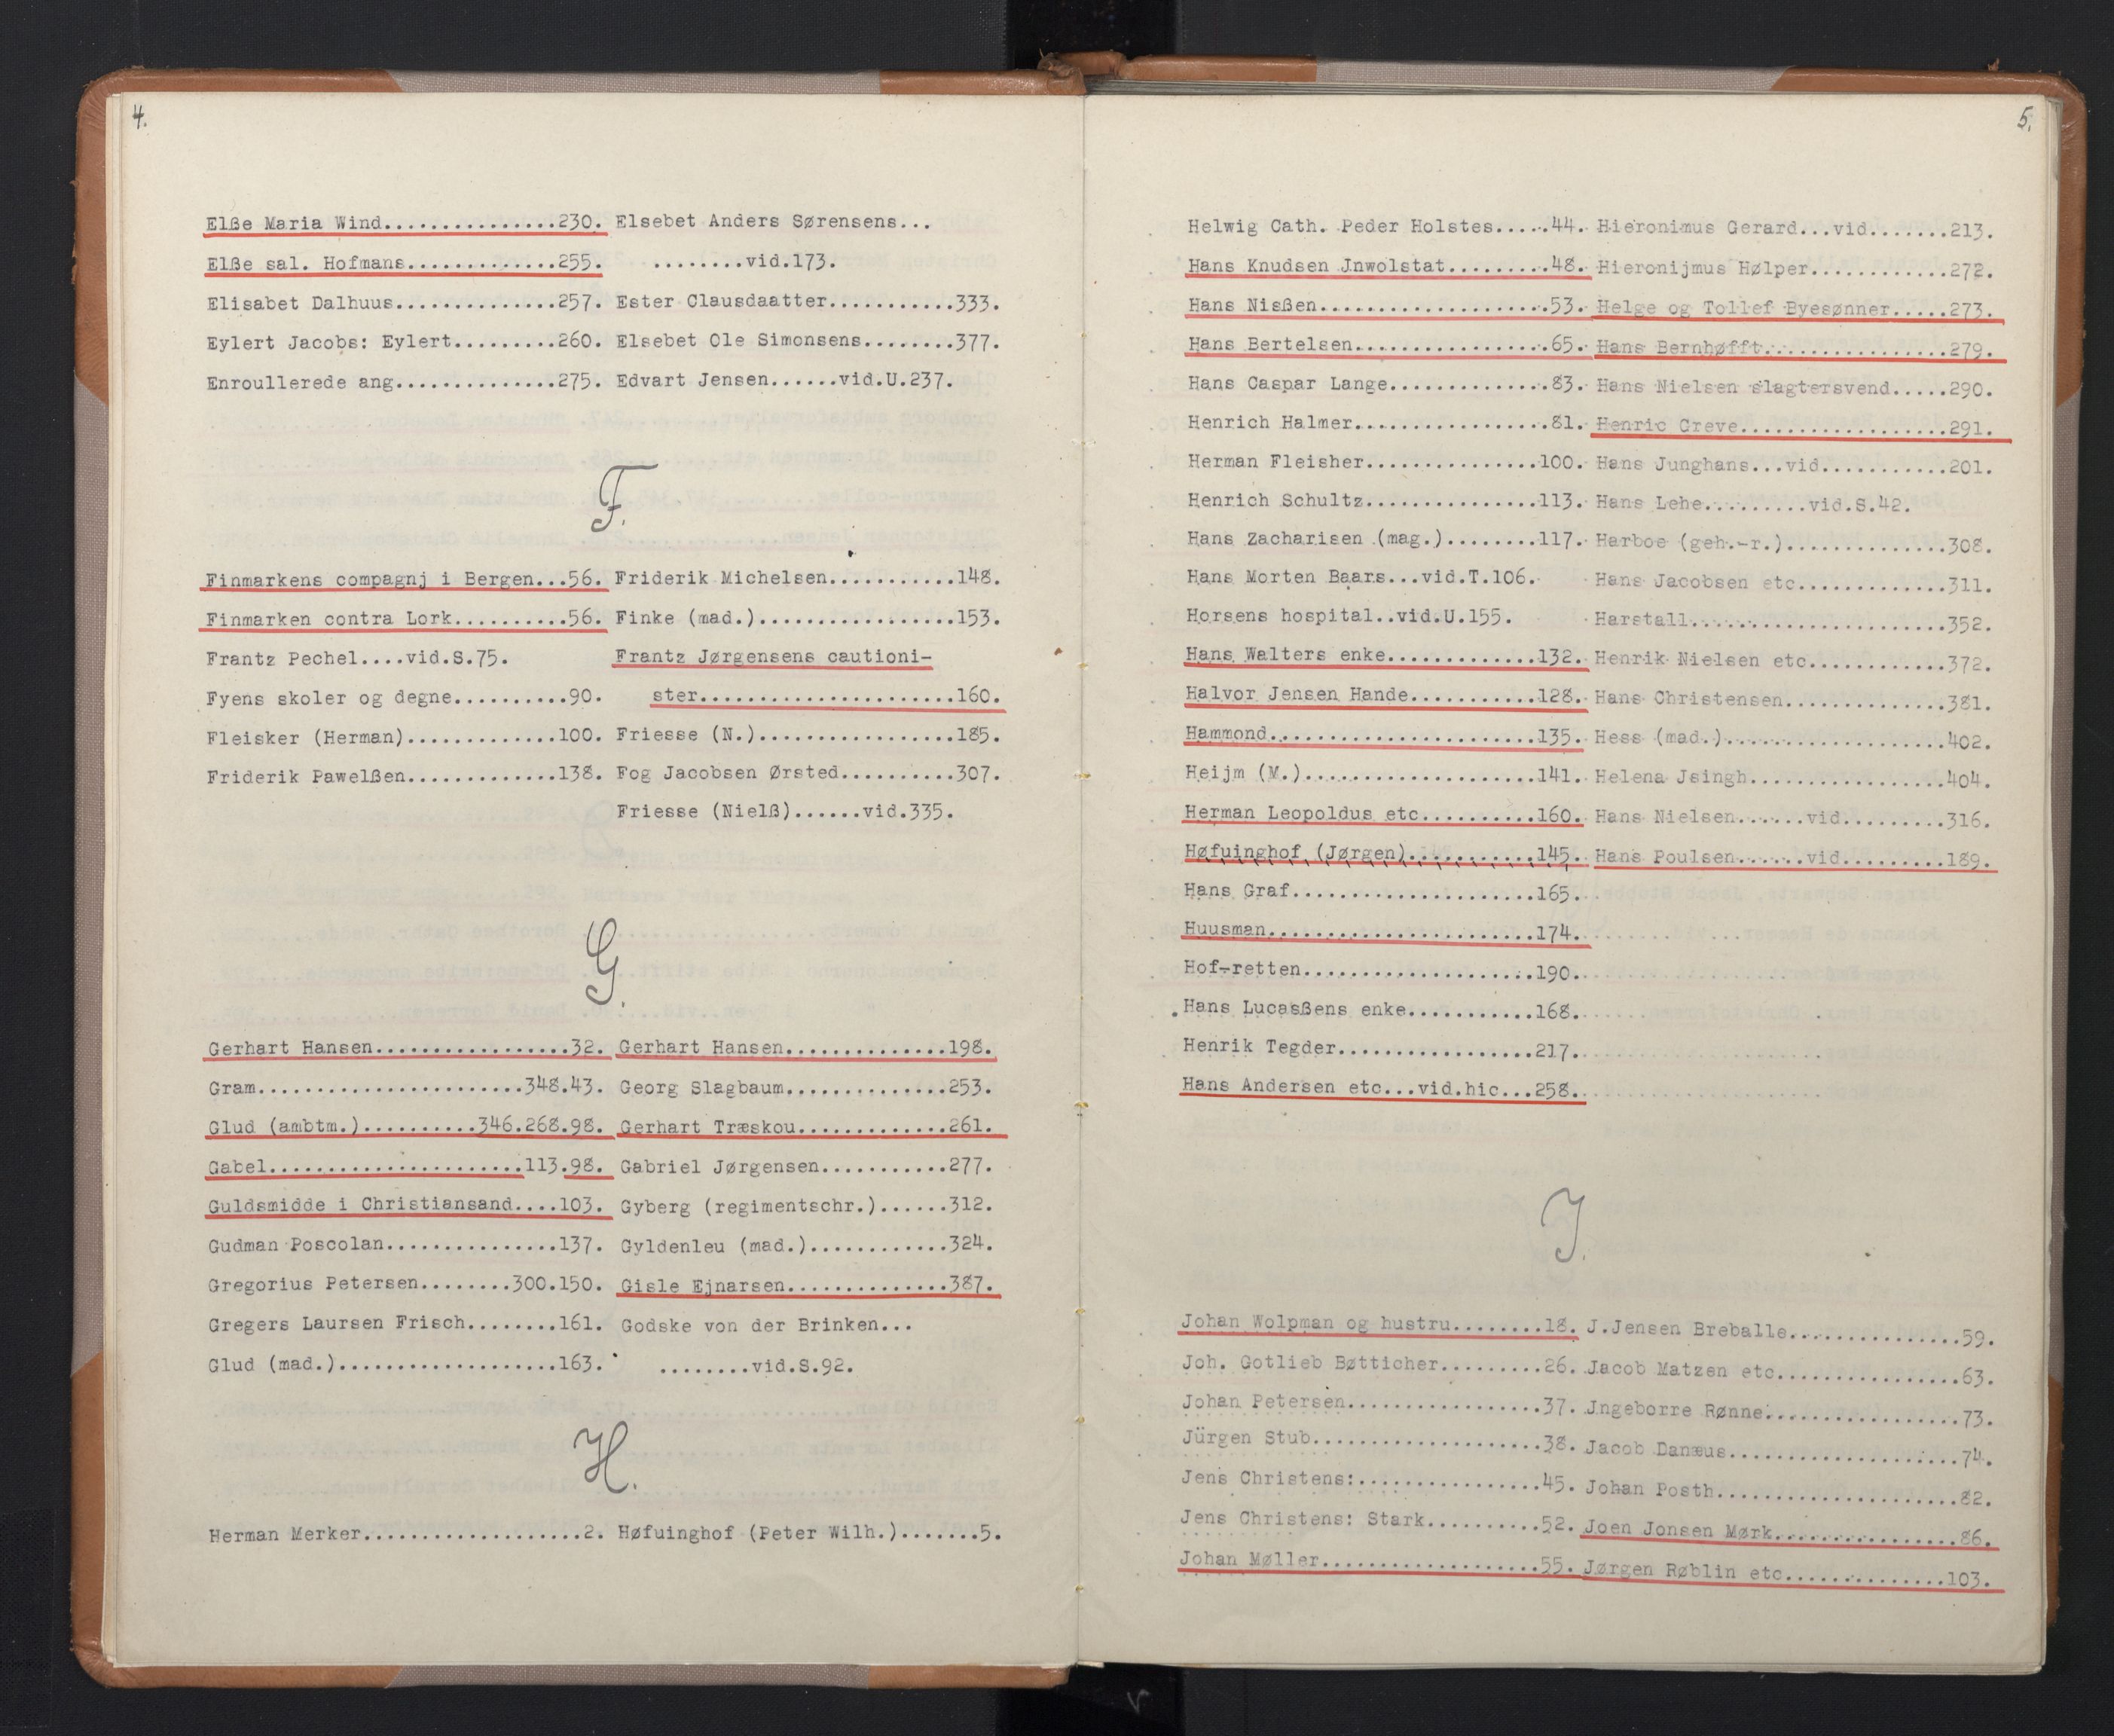 4.
Elße Maria Wind...............230.
Elße sal. Hofmans.............255.
Elisabet Dalhuus..............257.
Eylert Jacobs: Eylert.........260.
Enroullerede ang..............275.
Elsebet Anders Sørensens...
........vid.173.
Ester Clausdaatter...........333.
Elsebet Ole Simonsens........377.
Edvart Jensen......vid.U.237.
F.
Finmarkens compagnj i Bergen...56.
Finmarken contra Lork..........56.
Frantz Pechel....vid.S.75.
Fyens skoler og degne..........90.
Fleisker (Herman).............100.
Friderik Pawelßen.............138.
Friderik Michelsen...........148.
Finke (mad.).................153.
Frantz Jørgensens cautioni-
ster......................160.
Friesse (N.).................185.
Fog Jacobsen Ørsted..........307.
Friesse (Nielß)......vid.335.
G.
Gerhart Hansen.................32.
Gram.......................348.43.
Glud (ambtm.)..........346.268.98.
Gabel......................113.98.
Guldsmidde i Christiansand....103.
Gudman Poscolan...............137.
Gregorius Petersen........300.150.
Gregers Laursen Frisch........161.
Glud (mad.)...................163.
Gerhart Hansen..............198.
Georg Slagbaum..............253.
Gerhart Træskou.............261.
Gabriel Jørgensen...........277.
Gyberg (regimentschr.)......312.
Gyldenleu (mad.)............324.
Gisle Ejnarsen..............387.
Godske von der Brinken...
........vid.S.92.
H.
Herman Merker...................2.
Høfuinghof (Peter Wilh.).......5.
5.
Helwig Cath. Peder Holstes.....44.
Hans Knudsen Jnwolstat.........48.
Hans Nißen....................53.
Hans Bertelsen.................65.
Hans Caspar Lange..............83.
Henrich Halmer.................81.
Herman Fleisher...............100.
Henrich Schultz...............113.
Hans Zacharisen (mag.)........117.
Hans Morten Baars...vid.T.106.
Horsens hospital..vid.U.155.
Hans Walters enke.............132.
Halvor Jensen Hande...........128.
Hammond.......................135.
Heijm (M.)....................141.
Herman Leopoldus etc..........160.
Høfuinghof (Jørgen)...........145.
Hans Graf.....................165.
Huusman.......................174.
Hof-retten....................190.
Hans Lucasßens enke...........168.
Henrik Tegder.................217.
Hans Andersen etc...vid.hic...258.
Hieronimus Gerard...vid.......213.
Hieronijmus Hølper............272.
Helge og Tollef Byesønner.....273.
Hans Bernhøfft................279.
Hans Nielsen slagtersvend.....290.
Henric Creve..................291.
Hans Junghans...vid...........201.
Hans Lehe.........vid.S.42.
Harboe (geh.-r.)..............308.
Hans Jacobsen etc.............311.
Harstall......................352.
Henrik Nielsen etc............372.
Hans Christensen..............381.
Hess (mad.)...................402.
Helena Jsingh.................404.
Hans Nielsen......vid.........316.
Hans Poulsen......vid.........189.
J.
Johan Wolpman og hustru........18.
Joh. Gotlieb Bøtticher.........26.
Johan Petersen.................37.
Jürgen Stub....................38.
Jens Christens:................45.
Jens Christens: Stark..........52.
Johan Møller...................55.
J.Jensen Breballe...............59.
Jacob Matzen etc................63.
Jngeborre Rønne.................73.
Jacob Danæus....................74.
Johan Posth.....................82.
Joen Jonsen Mørk................86.
Jørgen Røblin etc..............103.